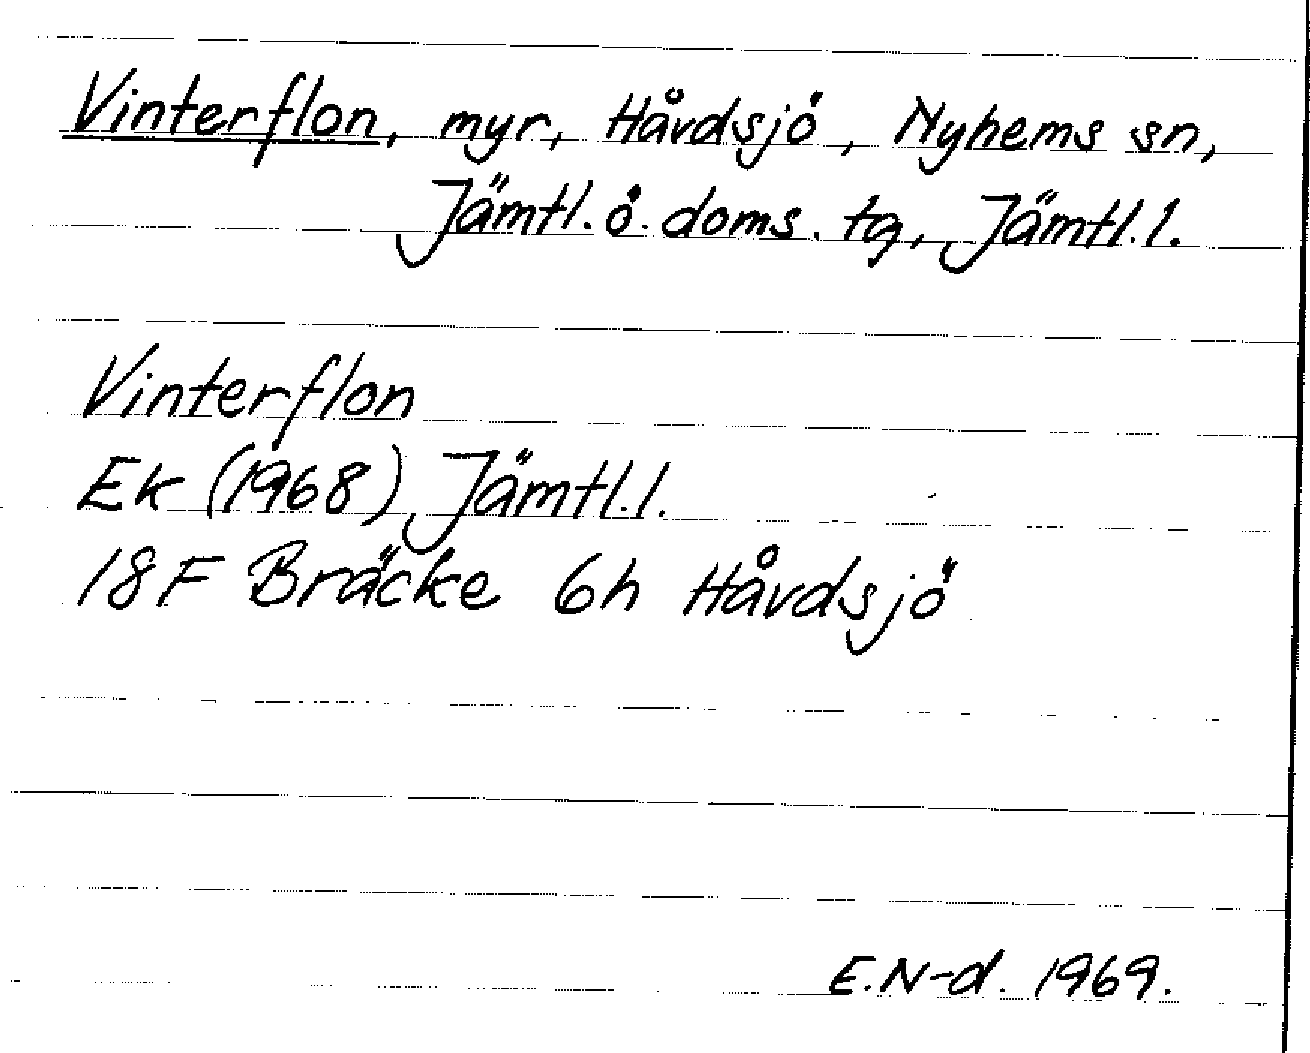 Vinterflon, myr, Håvdsjö, Nyhems sn,
Jämtl. ö. doms. tg, Jämtl. l.
Vinterflon
Ek (1968) Jämtl. l.
18F Bräcke 6h Håvdsjö
E. N-d. 1969.